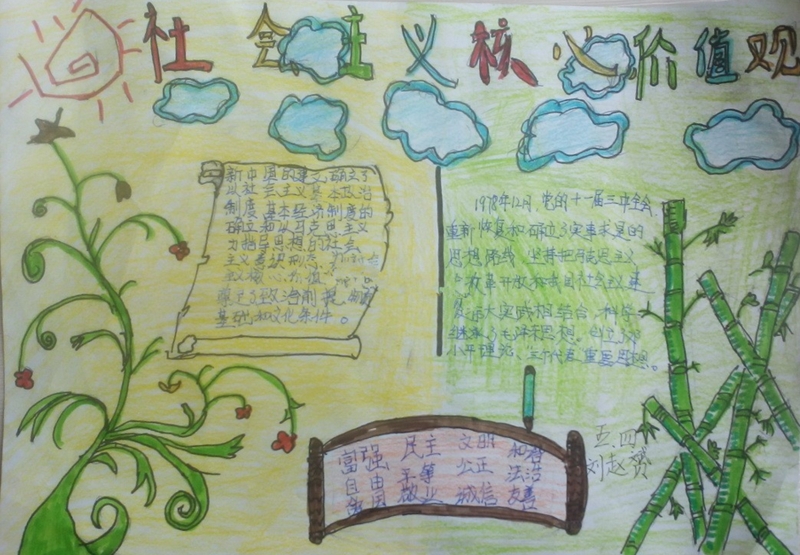 社会主义核心价值观
新中国的建立,确立了
以社会主义基本政治
制度基本经济制度的
确立和以马克思主义
为指导思想的社会
主义意识形态
主义核心价值
奠定了政治前提
基础和文化条件。
1978年12月,党的十一届三中全会,
重新恢复和确立了实事求是的
思想路线,坚持把马克思主义
改革开放和我国社会主义建
大实践相结合,科学
继承了毛泽东思想。
小平理论,三个代表重要思想。
富强 民主 文明 和谐
自由 平等 公正 法治
爱国 敬业 诚信 友善
五.四
刘赵贺